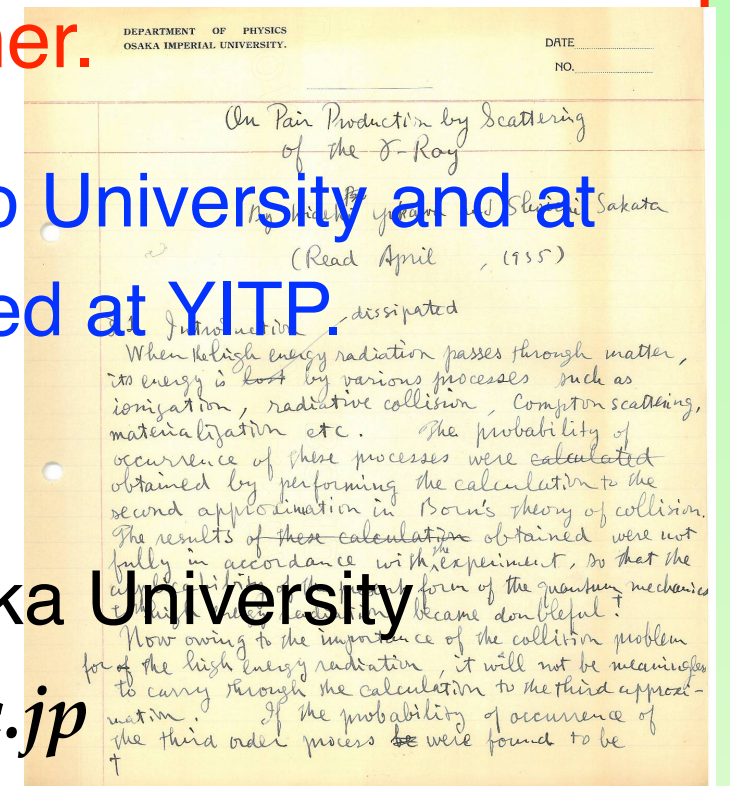 ner.
DEPARTMENT OF PHYSICS
OSAKA IMPERIAL UNIVERSITY.
DATE
NO.
On Pair Production by Scattering
of the γ-Ray
o University and at
By Hideki Yukawa and Shoichi Sakata
(Read April , 1935)
ed at YITP.
§1. Introduction dissipated
When the high energy radiation passes through matter,
its energy is lost by various processes such as
ionization, radiative collision, Compton scattering,
materialization etc. The probability of
occurrence of these processes were calculated
obtained by performing the calculation to the
second approximation in Born's theory of collision.
The results of these calculation obtained were not
fully in accordance with the experiment, so that the
applicability of the present form of the quantum mechanics
ka University
to high energy radiation became doubleful.†
Now owing to the importance of the collision problem
for of the high energy radiation, it will not be meaningless
to carry through the calculation to the third approxi-
c.jp
mation. If the probability of occurrence of
the third order process be were found to be
†